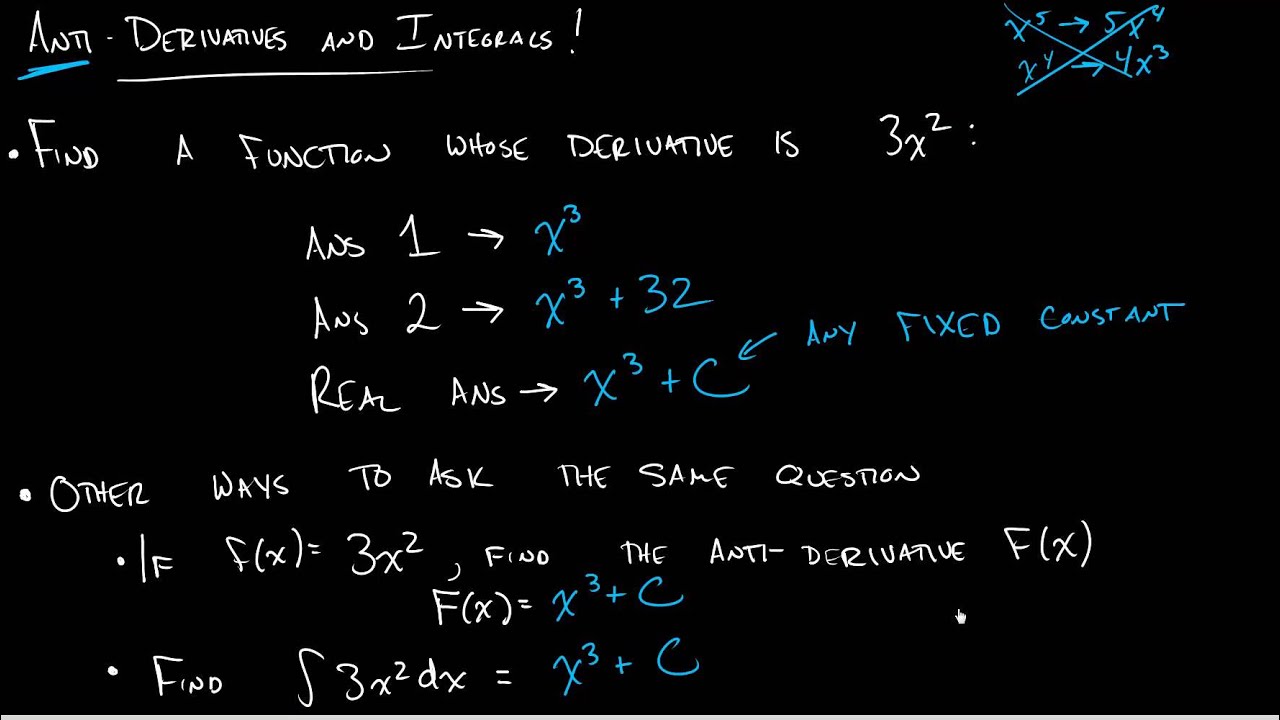 ANTI-DERIVATIVES AND INTEGRALS!
x⁵ → 5x⁴
x⁴ → 4x³
• FIND A FUNCTION WHOSE DERIVATIVE IS 3x²:
ANS 1 → x³
ANS 2 → x³ + 32
REAL ANS → x³ + C
ANY FIXED CONSTANT
• OTHER WAYS TO ASK THE SAME QUESTION
• IF f(x) = 3x², FIND THE ANTI-DERIVATIVE F(x)
F(x) = x³ + C
• FIND ∫ 3x² dx = x³ + C